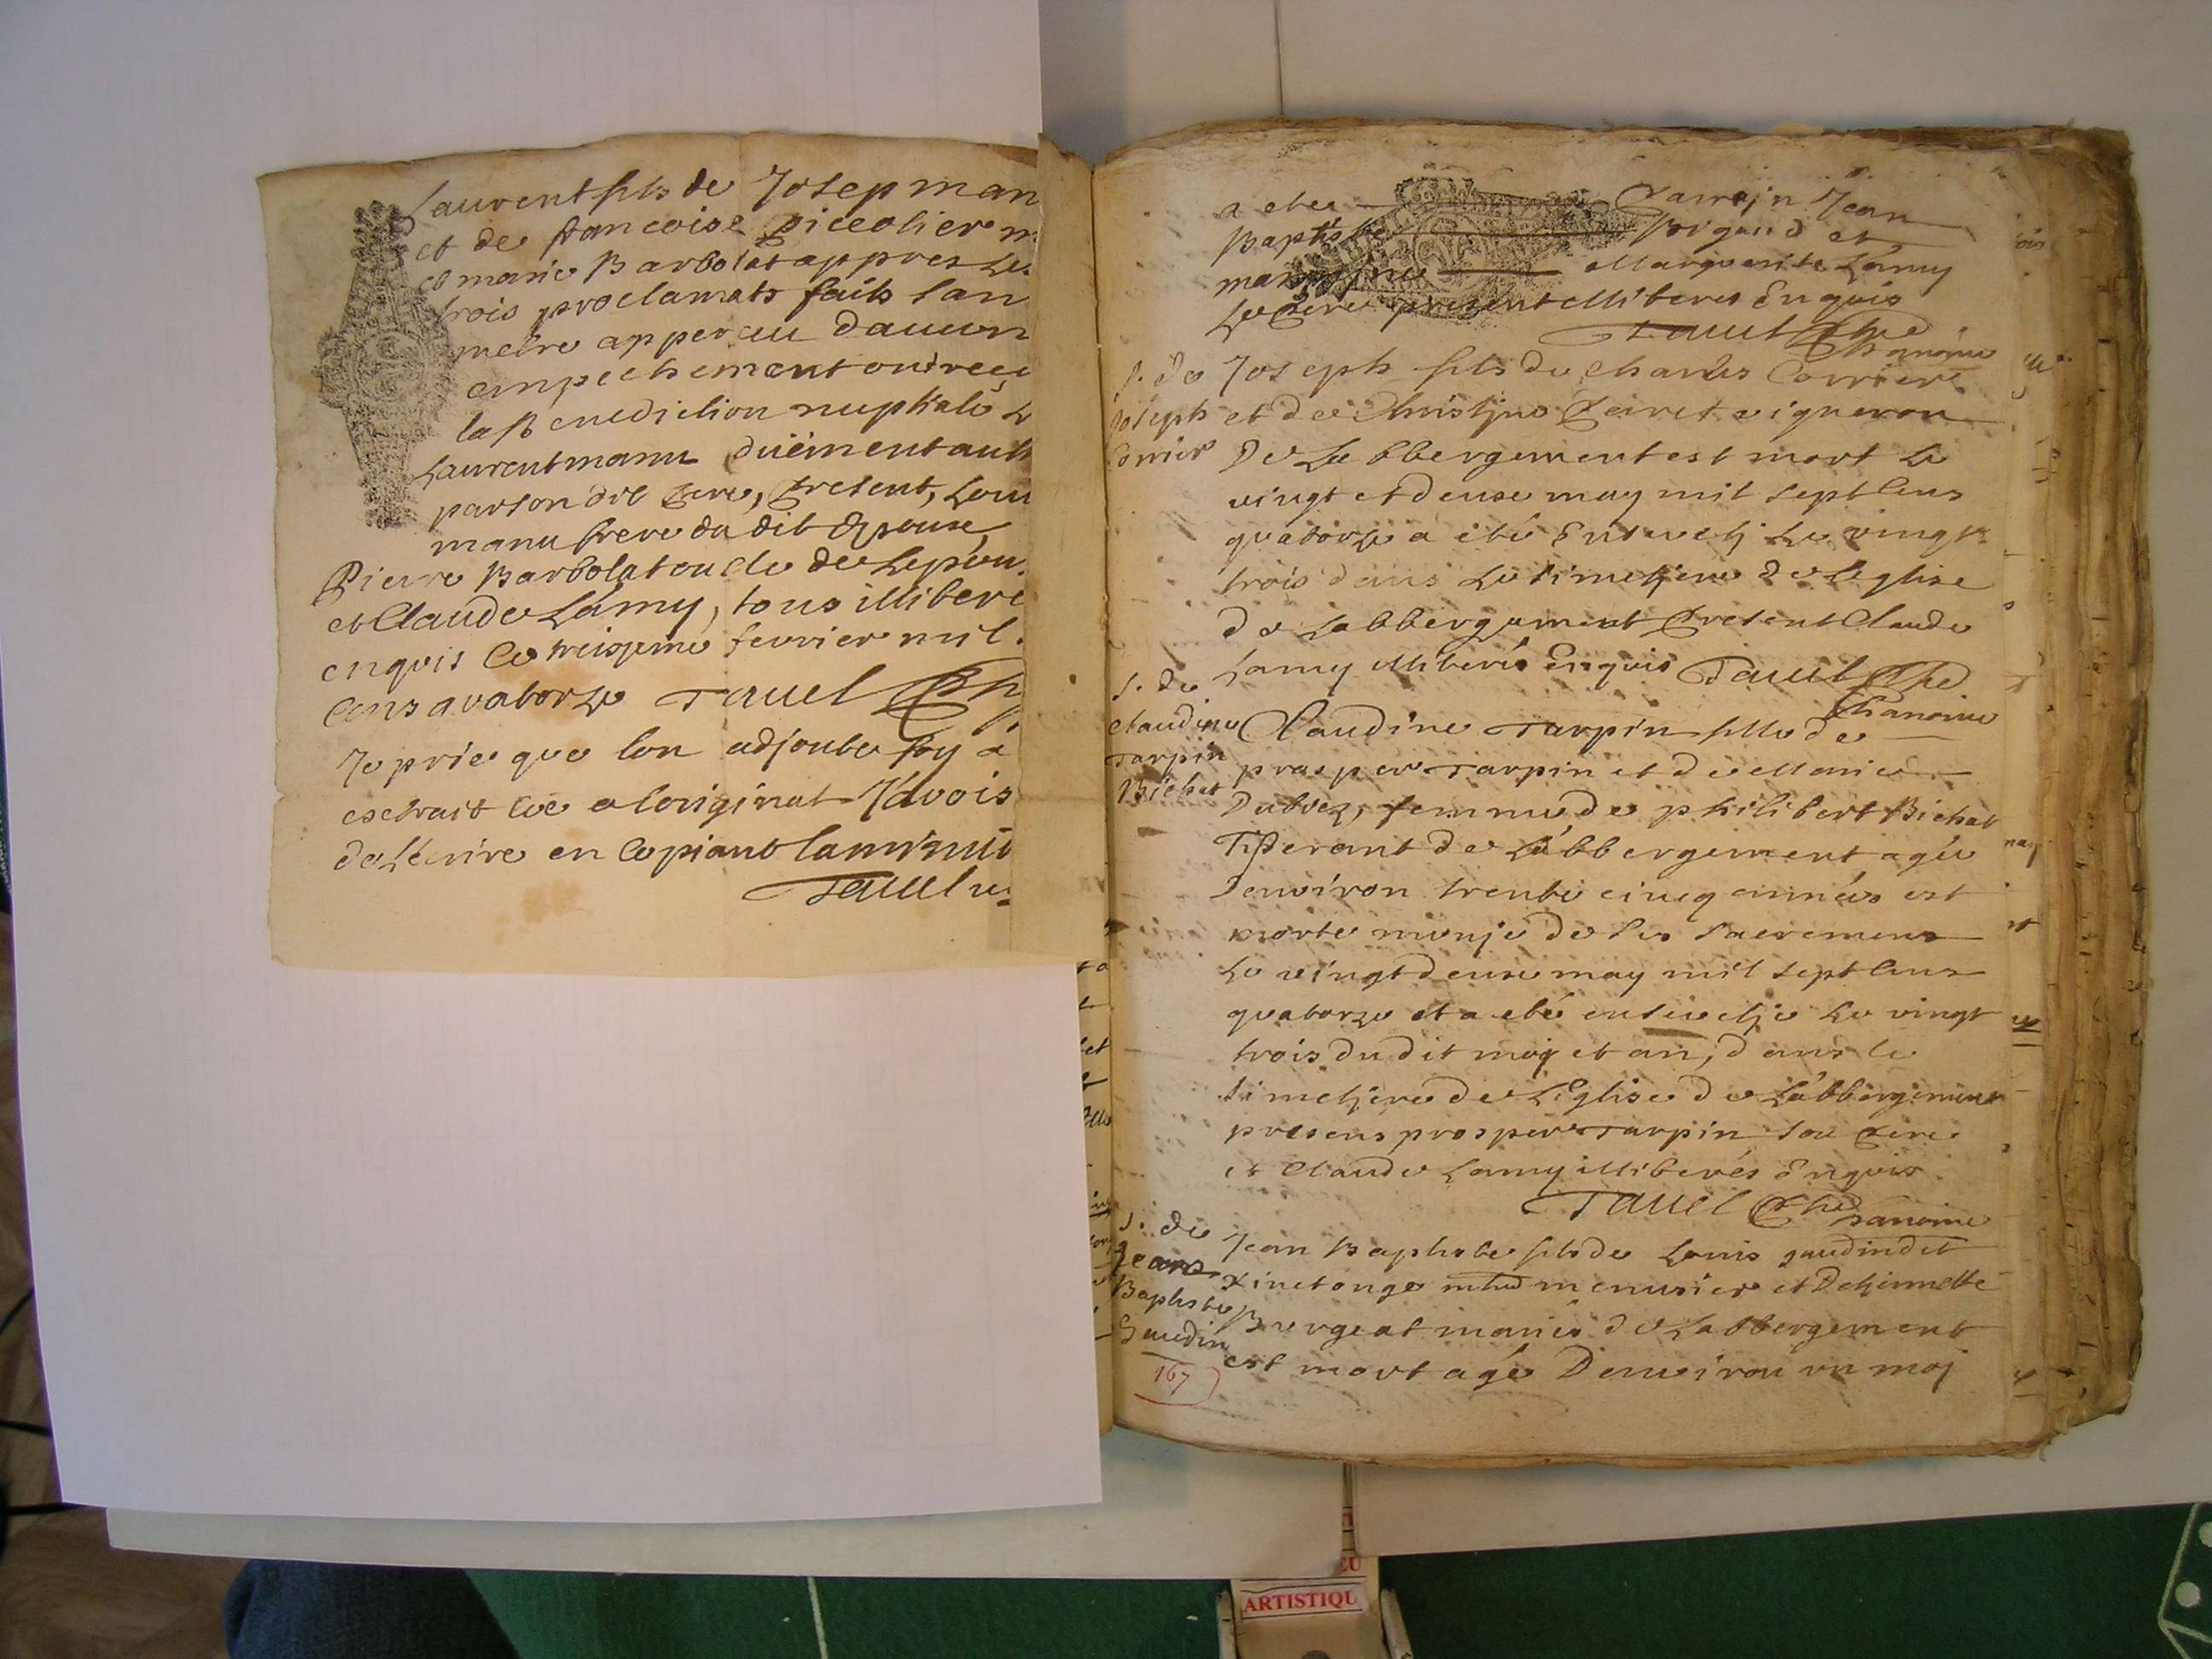 Laurent fils de Josep man
et de francoise piccolier m
et marie Barbolat appres Les
trois proclamats faits san
metre apperceu daucun
empechement ont receu
la Benediction nuptiale L
Laurent manu düement auth
par son dit pere, present, Loui
manu frere du dit Epoux
Pierre Barbolat oncle de Lepou
et Claude Lamy, tous illibere
enquis Ce treizieme fevrier mil
Cens quatorze Tavel
Je prie que lon adjoute foy a
extrait Coe a loriginal Javois
de Lécrire en Copiant la minut
Tavel
a ete Parrajn Jean
Baptiste Rigaud et
marrajne Marguerite Lamy
Le Pere present illiberes Enquis
Tavel
Chanoine
S. de Joseph fils de Charles Corrier
Joseph et de Christjne Perret vigneron
Corrier De Labbergement est mort Le
vingt et deuse may mil sept Cens
quatorze a été Ensevelj Le vingt
trois dans Le simetjere de Leglise
de Labbergement present Claude
Lamy illiberés Enquis Tavel
Chanoine
S. de
Claudine Claudine Tarpin fille de
Tarpin prosper Tarpin et de Marie
Bichat Dubrez, femme de philibert Bichat
Tisserant de Labbergement agée
denviron trente cincq années est
morte munje de ses sacremens
Le vingt deuse may mil sept Cens
quatorze et a eté ensevelje Le vingt
trois dudit moj et an, dans le
simetjere de LEglise de Labbergement
presens prosper Tarpin son pere
et Claude Lamy illiberés Enquis
Tavel
Chanoine
S. de Jean Baptiste fils de Louis gaudin dit
Jean Xinctonge menusier et Detjennette
Baptiste Bergeat mariés de Labbergement
Gaudin est mort agé Denviron un moj
167
ARTISTIQU